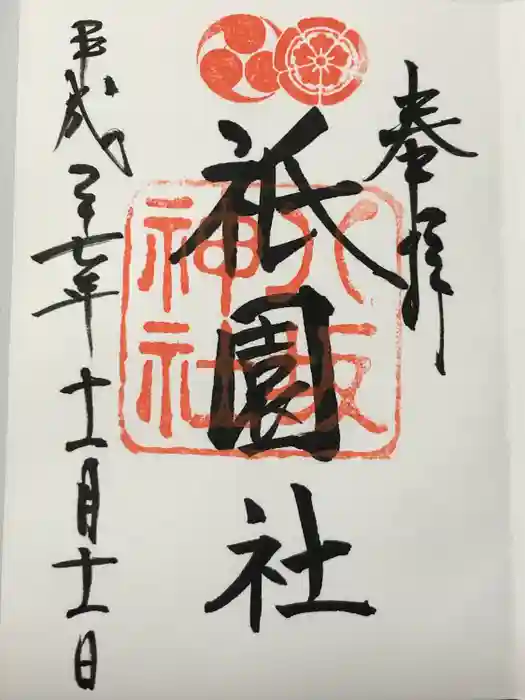 奉拝
八坂
神社
祇園社
平成二十七年十一月十一日